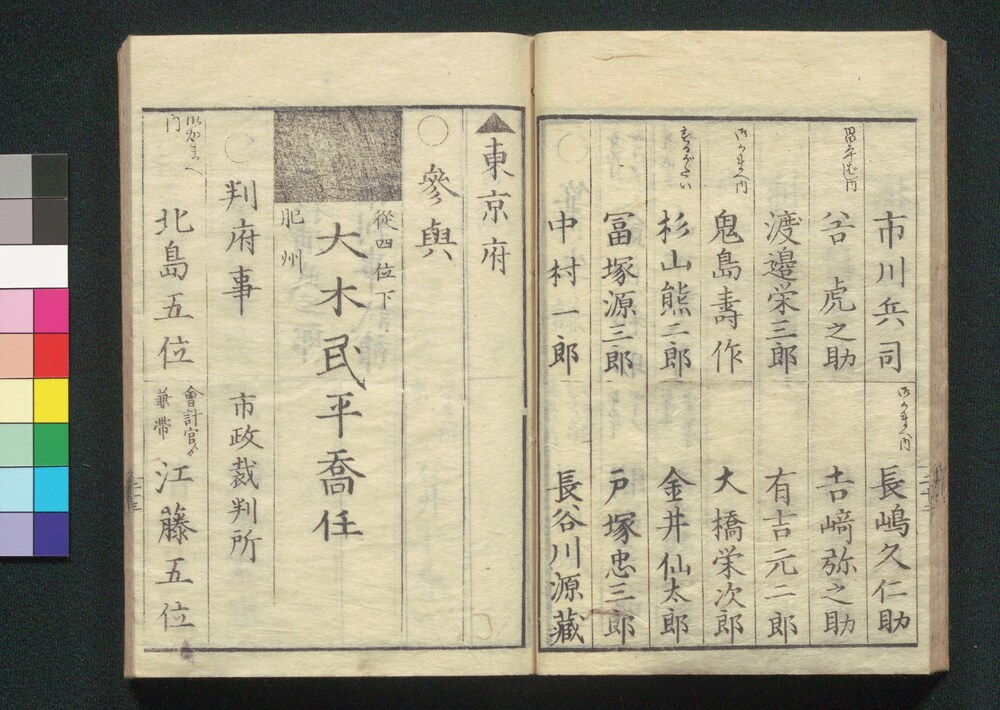 市川兵司
𠮷虎之助
渡邉栄三郎
鬼島壽作
杉山熊二郎
冨塚源三郎
中村一郎
長嶋久仁助
𠮷﨑弥之助
有吉元二郎
大橋栄次郎
金井仙太郎
戸塚忠三郎
長谷川源藏
▲東京府
○參與
從四位下
大木民平喬任
肥州
○判府事
市政裁判所
北島五位
會計官ゟ
兼帶
江藤五位